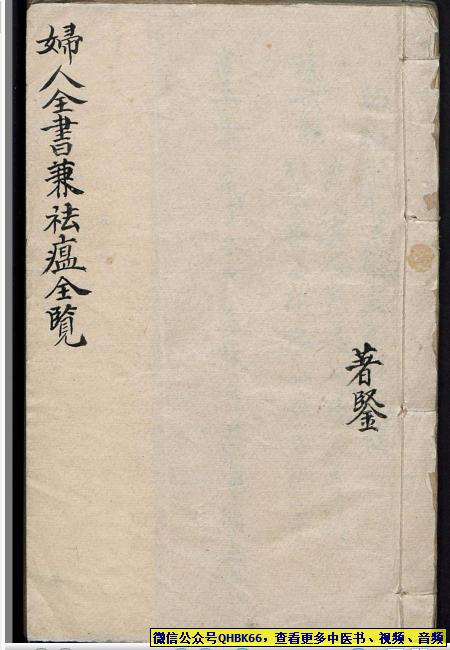 婦人全書兼祛瘟全覧
著鋻
微信公众号QHBK66，查看更多中医书、视频、音频